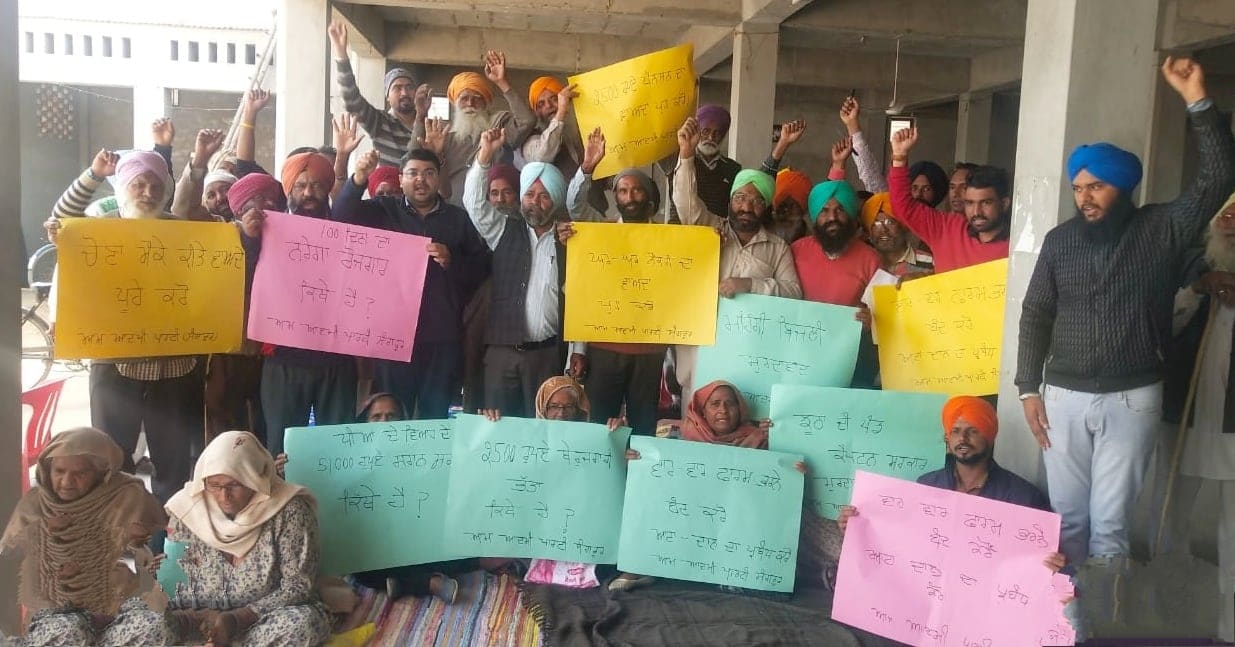 2500 ਰੁਪਏ ਪੈਨਸ਼ਨ ਦਾ
ਵਾਅਦਾ ਪੂਰਾ ਕਰੋ
ਆਮ ਆਦਮੀ ਪਾਰਟੀ
ਚੋਣਾਂ ਮੌਕੇ ਕੀਤੇ ਵਾਅਦੇ
ਪੂਰੇ ਕਰੋ
ਆਮ ਆਦਮੀ ਪਾਰਟੀ ਸੰਗਰੂਰ
100 ਦਿਨ ਦਾ
ਨਰੇਗਾ ਰੋਜਗਾਰ
ਕਿਥੇ ਹੈ ?
ਆਮ ਆਦਮੀ ਪਾਰਟੀ ਸੰਗਰੂਰ
ਘਰ-ਘਰ ਨੌਕਰੀ ਦਾ
ਵਾਅਦਾ
ਪੂਰਾ ਕਰੋ
ਆਮ ਆਦਮੀ ਪਾਰਟੀ ਸੰਗਰੂਰ
ਮਹਿੰਗੀ ਬਿਜਲੀ
ਮੁਰਦਾਬਾਦ
ਵਾਰ ਵਾਰ ਫਾਰਮ
ਬੰਦ ਕਰੋ
ਆਟਾ ਦਾਲ ਦਾ ਪ੍ਰਬੰਧ
ਆਮ ਆਦਮੀ ਪਾਰਟੀ
ਝੂਠ ਦੀ ਪੰਡ
ਕੈਪਟਨ ਸਰਕਾਰ
ਧੀਆਂ ਦੇ ਵਿਆਹ ਦੇ
51000 ਰੁਪਏ ਸ਼ਗਨ
ਕਿਥੇ ਹੈ ?
2500 ਰੁਪਏ ਬੇਰੁਜਗਾਰੀ
ਭੱਤਾ
ਕਿਥੇ ਹੈ ?
ਆਮ ਆਦਮੀ ਪਾਰਟੀ ਸੰਗਰੂਰ
ਵਾਰ-ਵਾਰ ਫਾਰਮ ਭਰਨੇ
ਬੰਦ ਕਰੋ
ਆਟਾ-ਦਾਲ ਦਾ ਪ੍ਰਬੰਧ ਕਰੋ
ਆਮ ਆਦਮੀ ਪਾਰਟੀ ਸੰਗਰੂਰ
ਵਾਰ ਵਾਰ ਫਾਰਮ ਭਰਨੇ
ਬੰਦ ਕਰੋ
ਆਟਾ ਦਾਲ ਦਾ ਪ੍ਰਬੰਧ
ਕਰੋ
ਆਮ ਆਦਮੀ